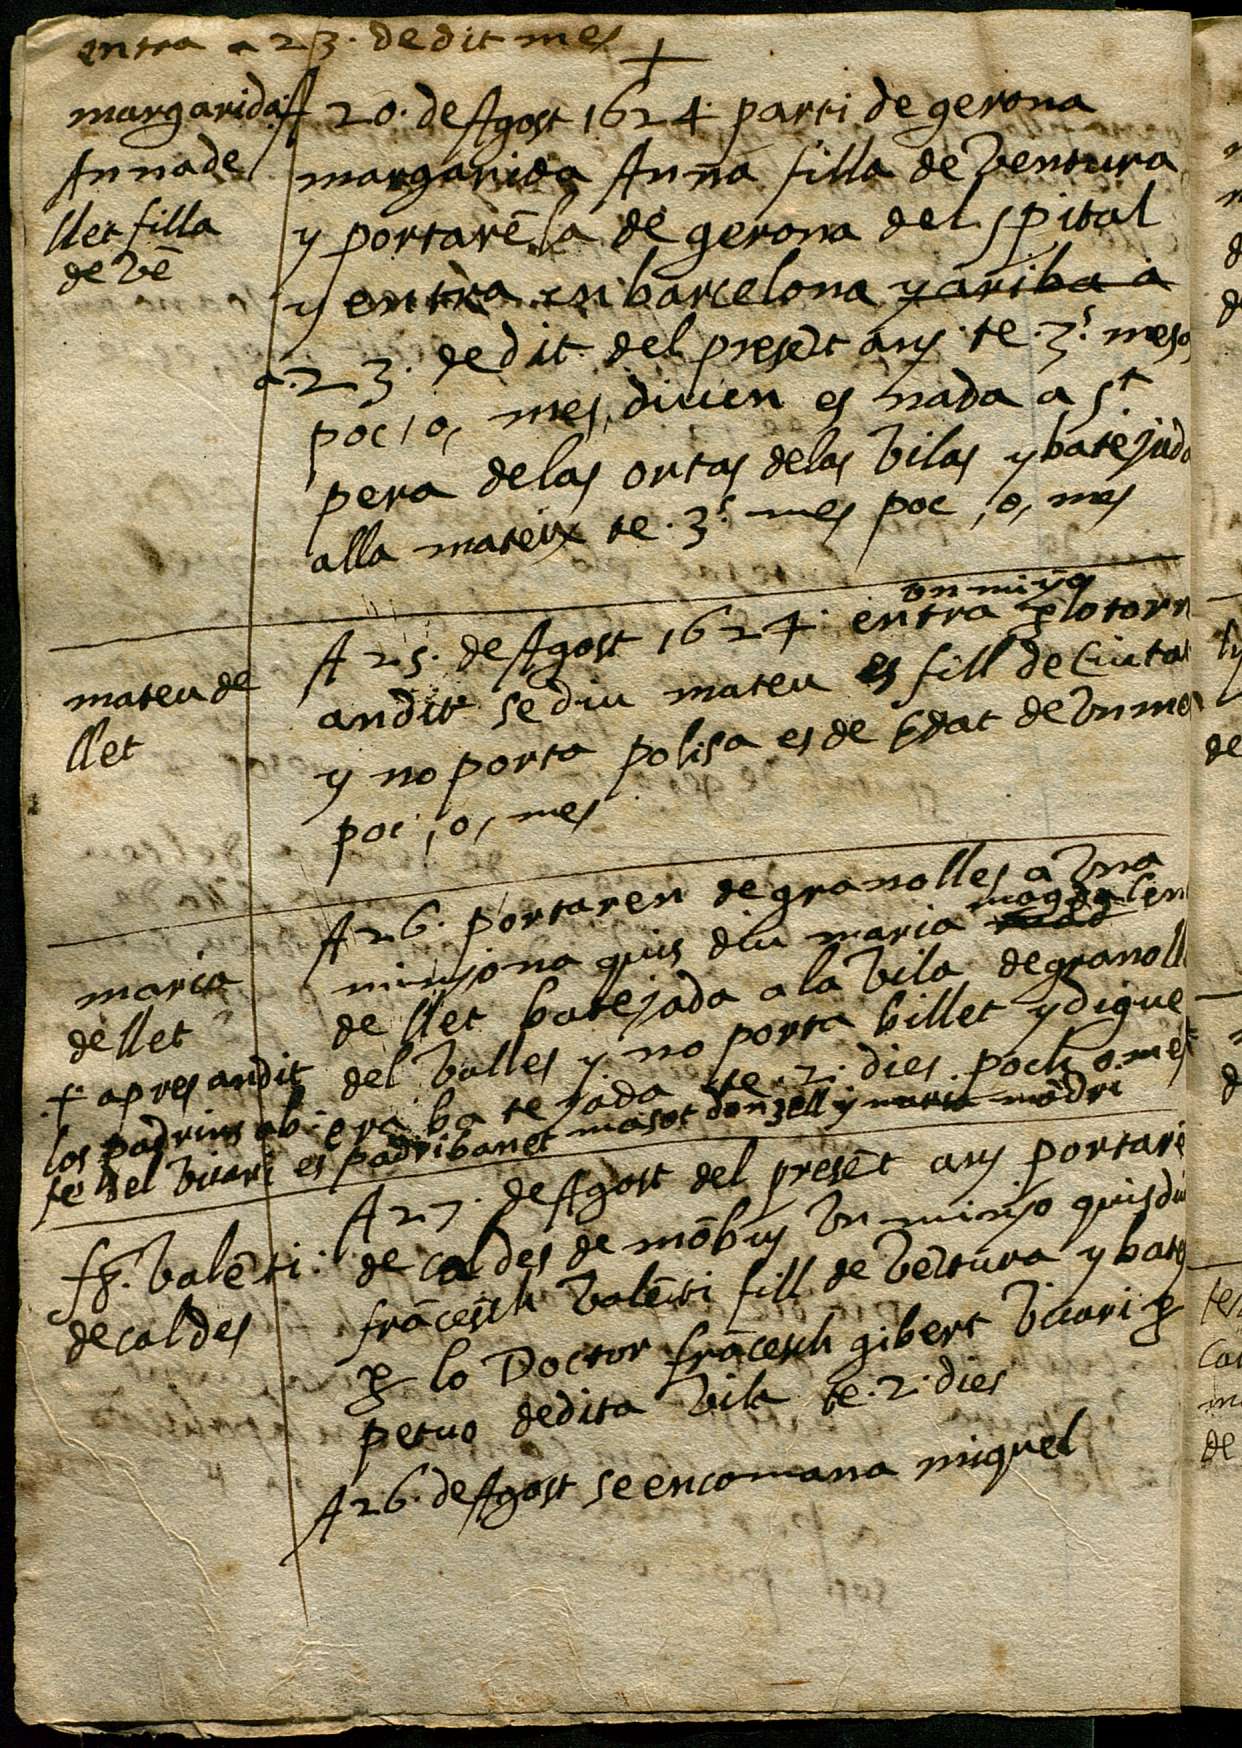 entra a 23. de dit mes
margarida
Anna de
llet filla
de Vẽ
A 20. de Agost 1624 parti de gerona
margarida Anna filla de Ventura
y portarẽ la de gerona del spital
y entra en barcelona y ariba a
a. 23. de dit del presẽt any te. 3.s mesos
poc, o, mes, diuen es nada a St
pera de las ortas de las Vilas y batejada
alla mateix te. 3.s mes poc, o, mes
mateu de
llet
un minyo
A 25. de Agost 1624. entra p lo torn
andit se diu mateu es fill de Ciutat
y no porta polisa es de Edat de Un mes
poc, o, mes
maria
de llet
A 26. portaren de granolles a Una
minyona quis diu maria magdalena
de llet batejada a la Vila de granolle
del Valles y no porta billet y digue
era batejada te. 2. dies poch o mes
+ apres andit
los padrins ab
fe del Vicari es padri banet masot donzell y maria madri
fȓ. Valẽti
de caldes
A 27. de Agost del presẽt any portarẽ
de caldes de mõbuy Un minyo quis diu
frãcesch Valẽti fill de Vẽtura y bate
p lo Doctor frãcesch gibert Vicari p
petuo de dita Vila te. 2. dies
A 26. de Agost se encomana miquel